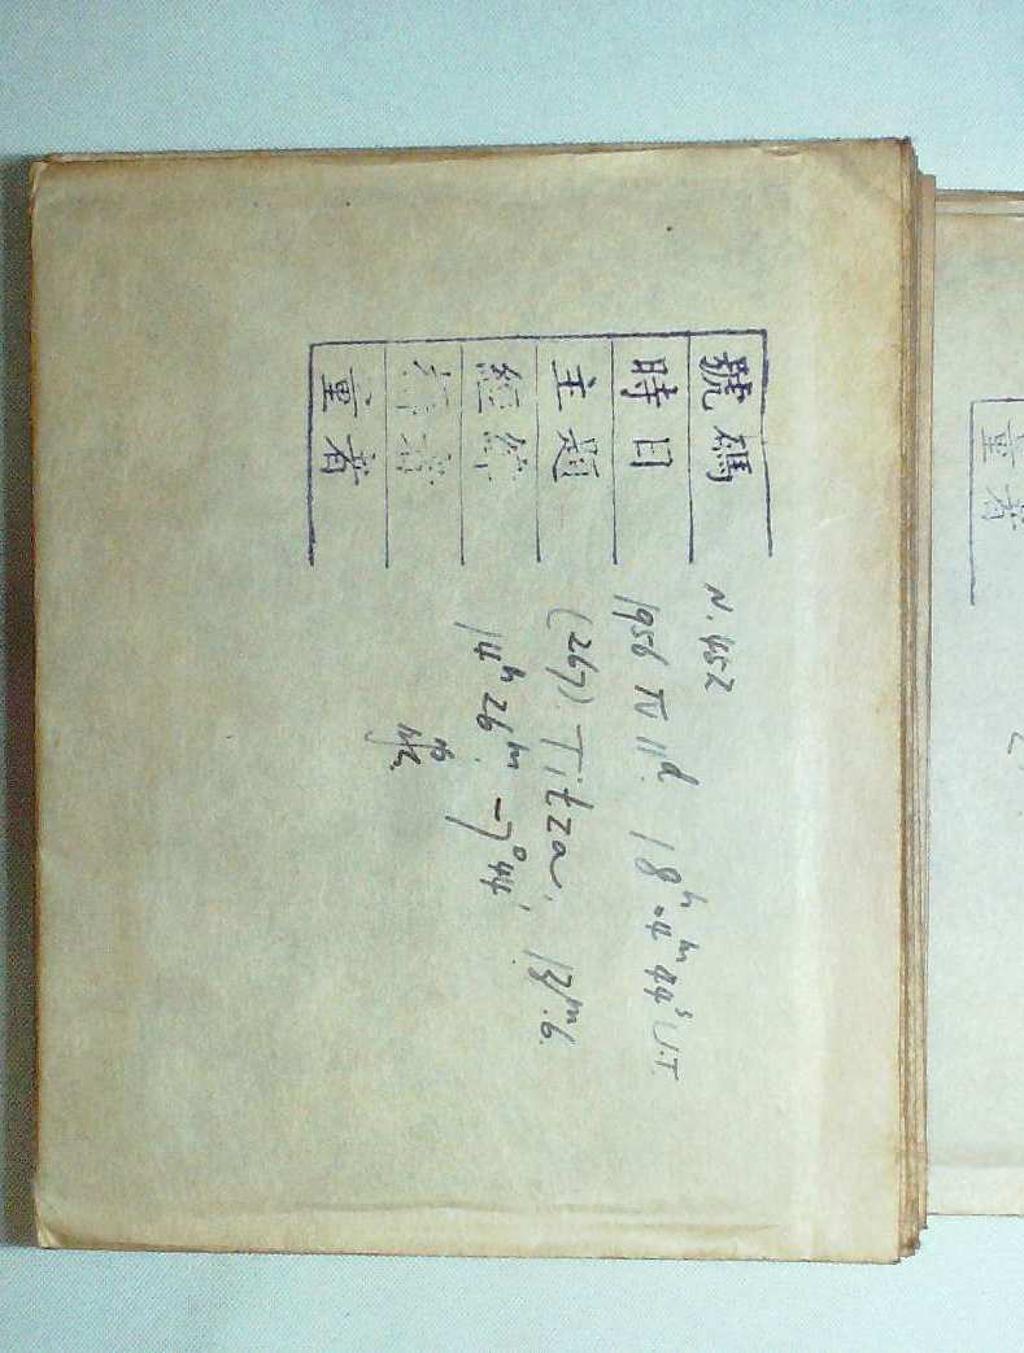 號碼 N. 452
時日 1956 IV 11d. 18h 04m 44s U.T.
主題 (267) Titza, 13m.6.
經緯 14h 26m, -7° 44',
著
畫者
畫者